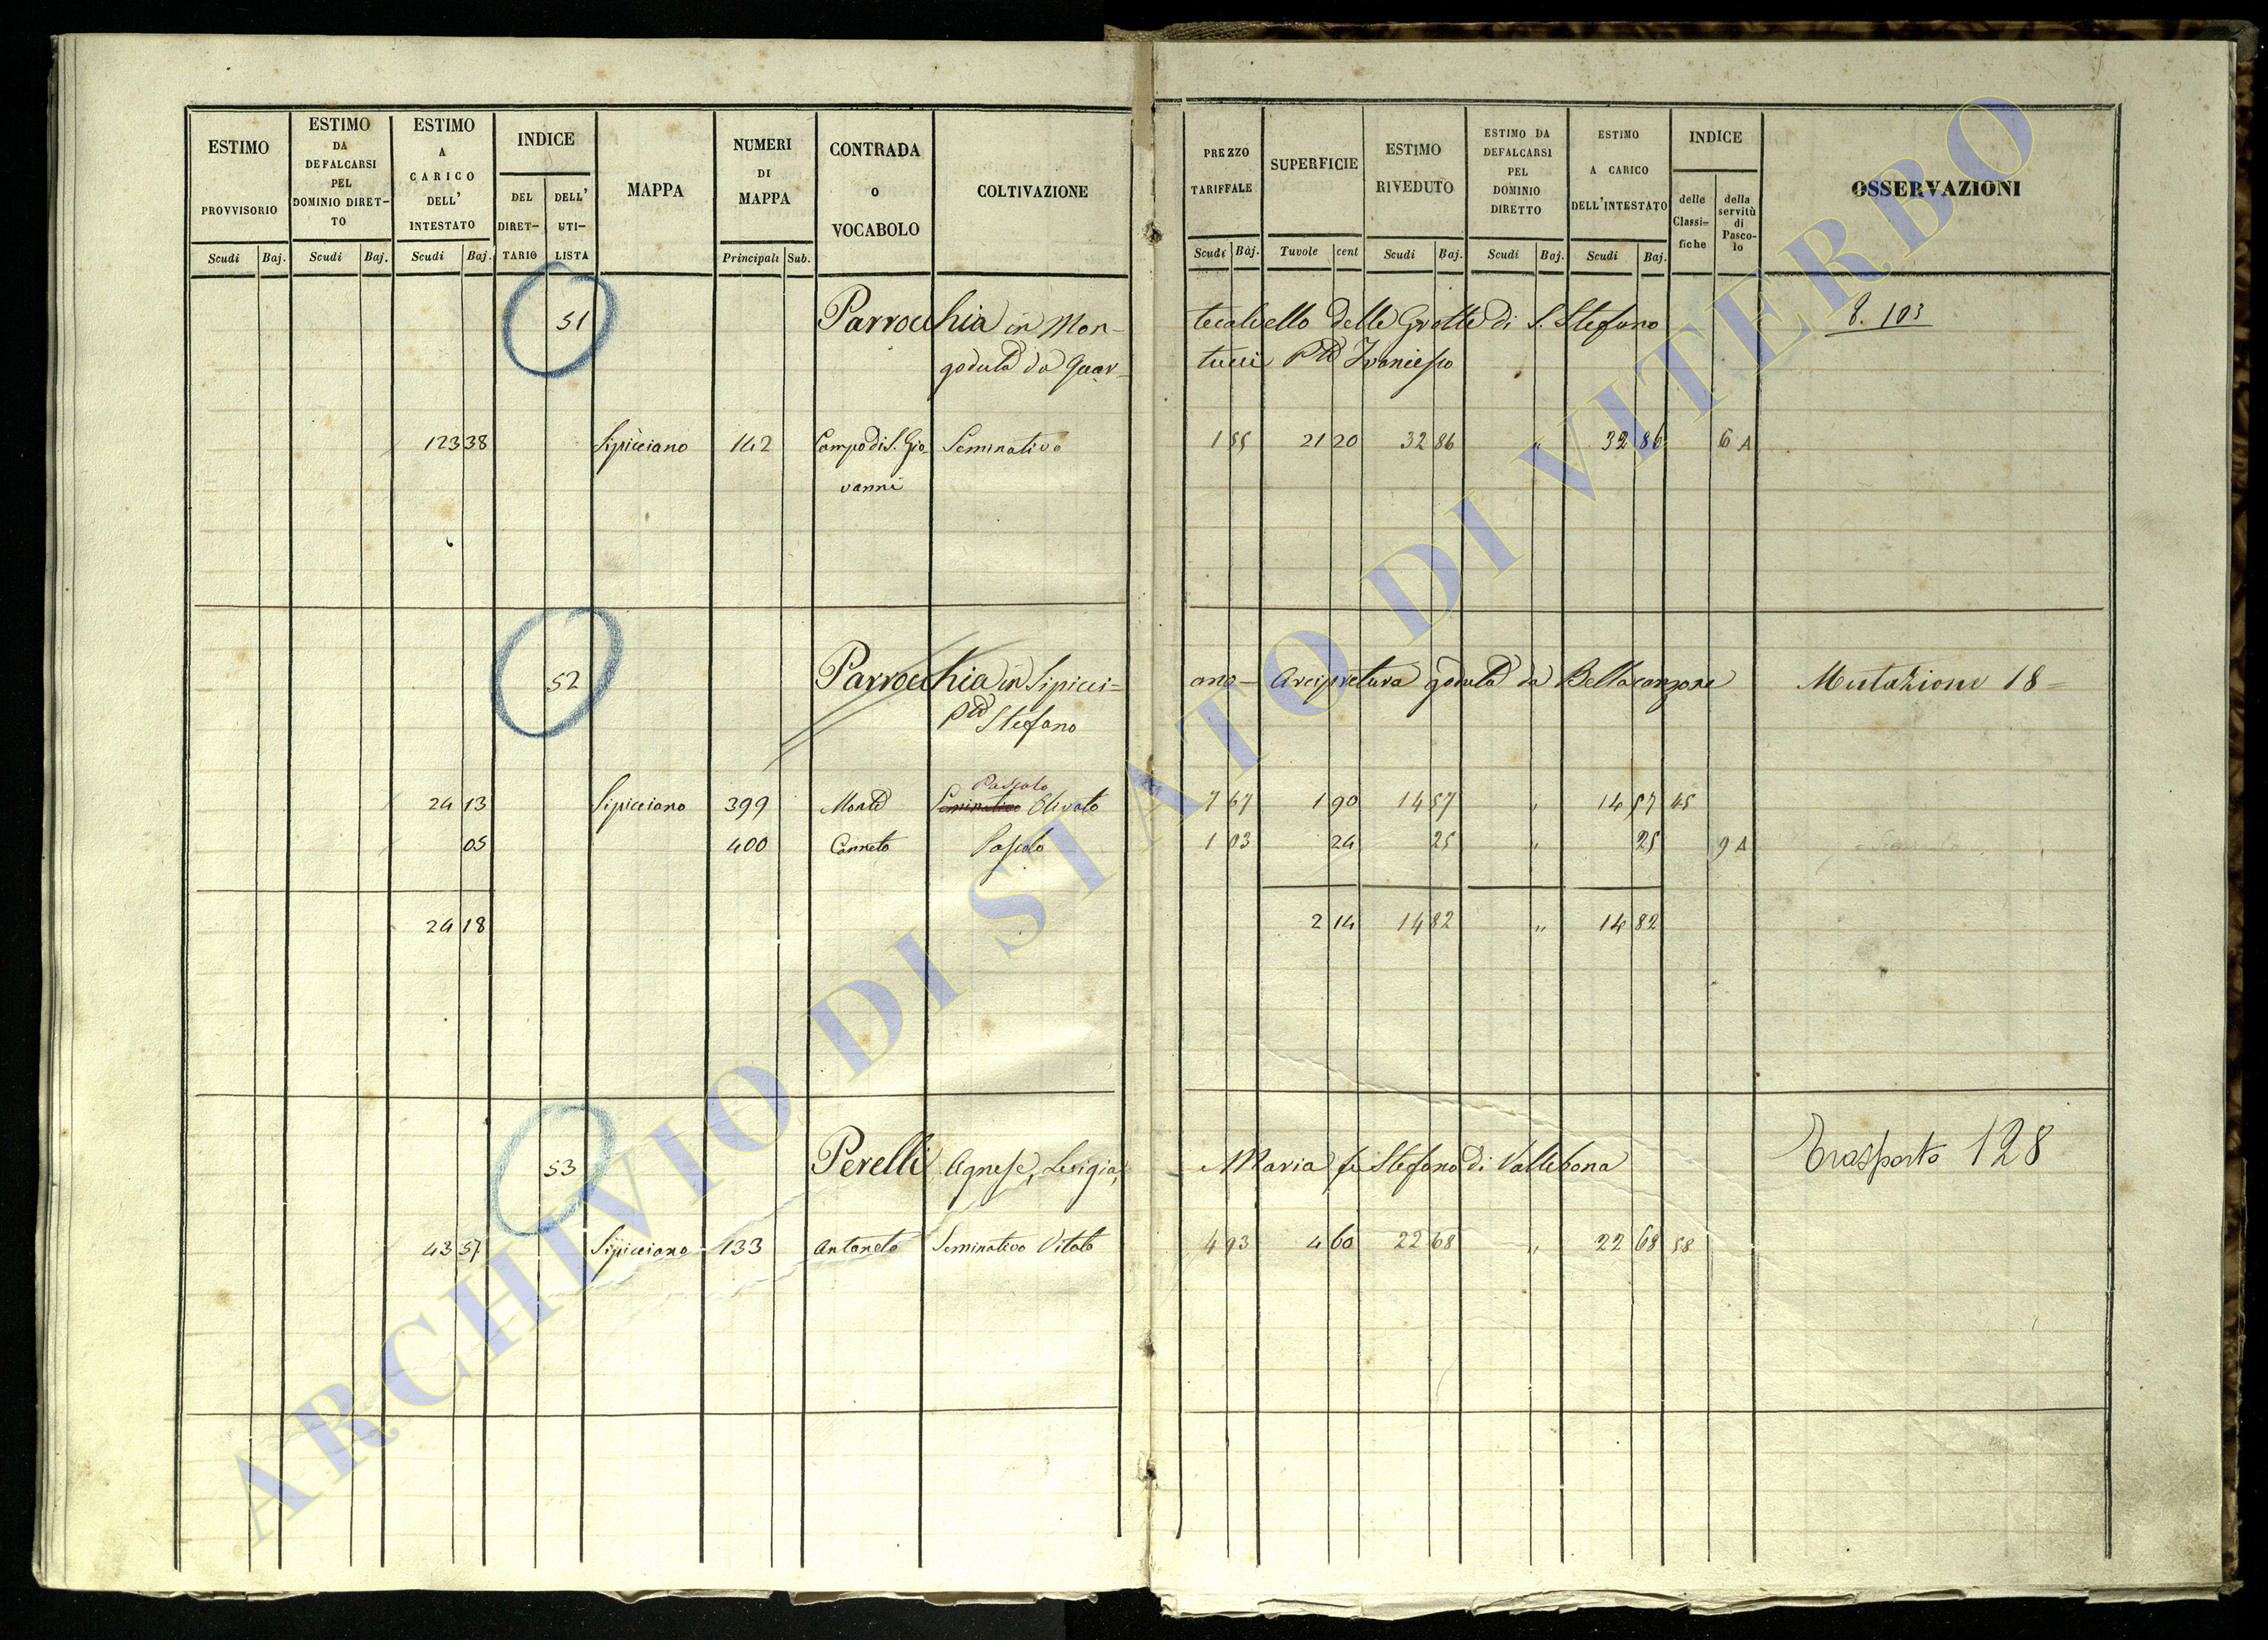 ESTIMO PROVVISORIO
Scudi Baj.
ESTIMO DA DEFALCARSI PEL DOMINIO DIRET-TO
Scudi Baj.
ESTIMO A CARICO DELL' INTESTATO
Scudi Baj.
INDICE
DEL DIRET-TARIO
DELL' UTI-LISTA
MAPPA
NUMERI DI MAPPA
Principali Sub.
CONTRADA O VOCABOLO
COLTIVAZIONE
PREZZO TARIFFALE
Scudi Baj.
SUPERFICIE
Tuvole cent
ESTIMO RIVEDUTO
Scudi Baj.
ESTIMO DA DEFALCARSI PEL DOMINIO DIRETTO
Scudi Baj.
ESTIMO A CARICO DELL'INTESTATO
Scudi Baj.
INDICE
delle Classi-fiche
della servitù di Pasco-lo
OSSERVAZIONI
51 Parrocchia in Mon- tecalvello delle Grotte di S. Stefano 8. 103
goduta da Quar- tucci Pte Francesco
123 38 Sipicciano 142 Campo di S. Gio- Seminativo 1 55 21 20 32 86 " 32 86 6 A
vanni
52 Parrocchia in Sipicci= ano - Arcipretura goduta da Bellacanzone Mutazione 18=
Stefano
Pascolo
24 13 Sipicciano 399 Monte Seminativo Olivato 7 67 1 90 14 57 " 14 57 45
05 400 Canneto Pascolo 1 03 24 25 " 25 9 A
24 18 2 14 14 82 " 14 82
53 Perelli Agnese, Luigia, Maria fu Stefano di Vallebona Trasporto 128
43 57 Sipicciano 133 Antoneto Seminativo Vitato 4 93 4 60 22 68 " 22 68 58
ARCHIVIO DI STATO DI VITERBO